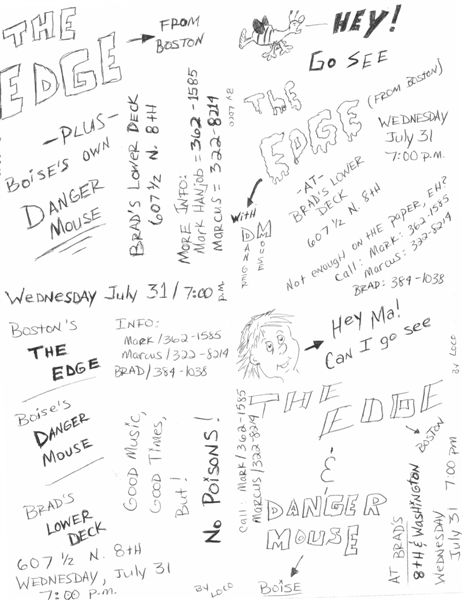 THE
EDGE
FROM
BOSTON
-PLUS-
BOISE'S OWN
DANGER
MOUSE
BRAD'S LOWER DECK
607 1/2 N. 8TH
MORE INFO:
MARK HANJOB = 362-1585
MARCUS = 322-8214
BY LOCO
HEY!
GO SEE
THE
EDGE
(FROM BOSTON)
WEDNESDAY
July 31
7:00 P.M.
-AT-
BRAD'S LOWER
DECK
607 1/2 N. 8TH
WITH
DANGER
MOUSE
NOT ENOUGH ON THE PAPER, EH?
Call: MARK: 362-1585
MARCUS: 322-8214
BRAD: 384-1038
WEDNESDAY July 31/7:00 P.M
BOSTON'S
THE
EDGE
INFO:
MARK/362-1585
MARCUS/322-8214
BRAD/384-1038
BOISE'S
DANGER
MOUSE
BRAD'S
LOWER
DECK
607 1/2 N. 8TH
WEDNESDAY, July 31
7:00 P.M.
GOOD MUSIC,
GOOD TIMES,
But!
NO POISONS!
BY LOCO
HEY MA!
CAN I GO SEE
THE
EDGE
BOSTON
&
DANGER
MOUSE
BOISE
Call: MARK/362-1585
MARCUS/322-8214
AT BRAD'S
8TH & WASHINGTON
WEDNESDAY
July 31 7:00 PM
BY LOCO